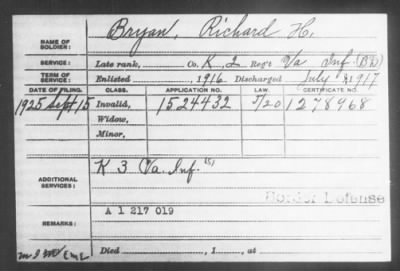 NAME OF SOLDIER: Bryan, Richard H.
SERVICE: Late rank, Co. K, 2 Reg't Va Inf (BD)
TERM OF SERVICE: Enlisted , 1916 Discharged July , 1917
DATE OF FILING. CLASS. APPLICATION NO. LAW. CERTIFICATE NO.
1925 Sept 15 Invalid, 1524432 5/20 1278968
Widow,
Minor,
ADDITIONAL SERVICES: K 3 Va. Inf.
Border Defense
REMARKS: A 1 217 019
Died , 1 , at